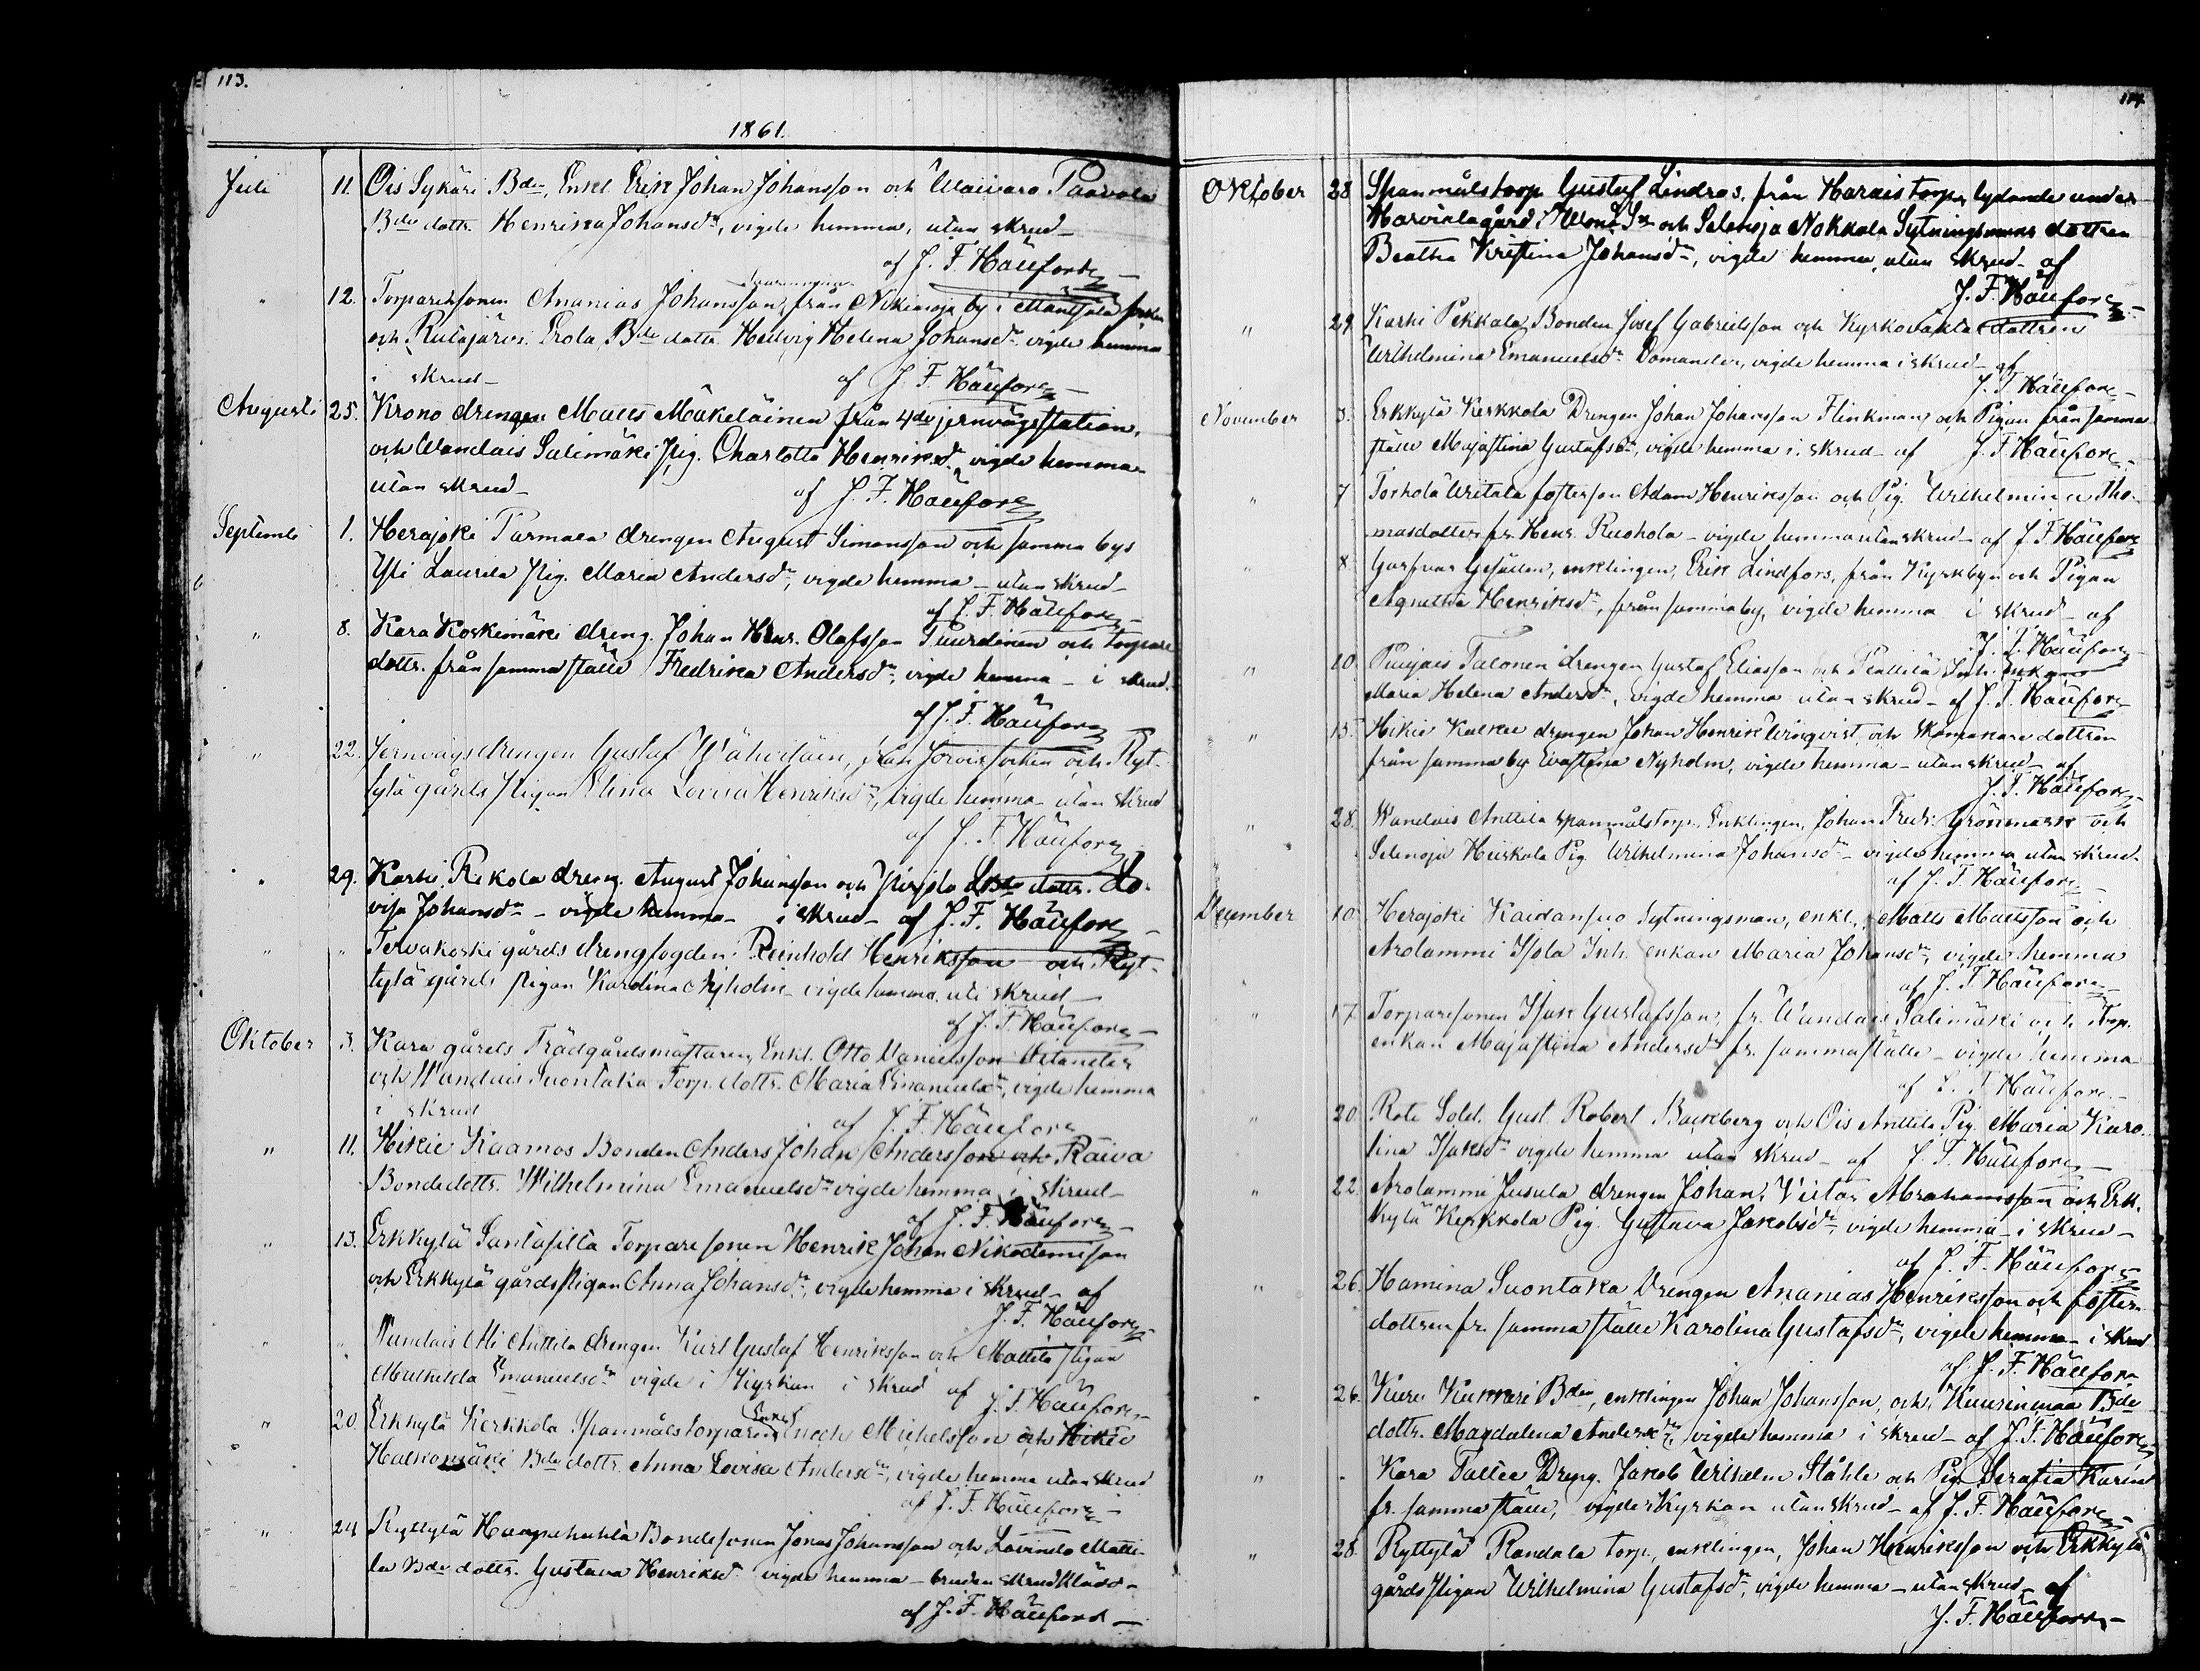 113.
1861.
Juli 11. Ois Sykäri Bdn, Enkl Erik Johan Johansson och Paavola
Bde dottr. Henrika Johansdr, vigde hemma, utan skrud_
af J. F. Häufors
" 12. Torparesonen Ananias Johansson, från Nikinoja by i Mäntsälä socken
och Rutajärvi Erola, Bde dottr. Hedvig Helena Johansdr vigde hemma
i skrud_ af J. F. Häufors
Augusti 25. Krono drengen Matts Mäkeläinen från 4de jernvägsstation,
och Wandais Salimäki pig. Charlotta Henriksdr, vigde hemma
utan skrud_ af J. F. Häufors
Septemb 1. Herajoki Parmala drengen August Simonsson och samma bys
Yli Laurila pig. Maria Andersdr, vigde hemma_ utan skrud_
af J. F. Häufors
" 8. Kara Koskimäki dreng. Johan Henr. Olafsson och torpare
dottr. från samma ställe Fredrika Andersdr, vigde hemma_ i skrud.
af J. F. Häufors
" 22. Jernvägsdrengen Gustaf från socken och Ryt-
tylä gårds pigan Elina Lovisa Henriksdr, vigde hemma_ utan skrud
af J. F. Häufors
" 29. Karhi Rekola dreng. August Johansson och Bde dottr. Lo-
visa Johansdr_ vigde hemma_ i skrud_ af J. F. Häufors
" " Tervakoski gårds drengfogden Reinhold Henriksson och Ryt-
tylä gårds pigan Karolina Nyholm_ vigde hemma uti skrud_
af J. F. Häufors
Oktober 3. Kara gårds Trädgårdsmästaren, Enkl. Otto Danielsson
och Wandais Suontaka Torp. dottr. Maria Emanuelsdr, vigde hemma
i skrud af J. F. Häufors
" 11. Hikiä Kaamos Bonden Anders Johan Andersson och Raiva
Bondedottr. Wilhelmina Emanuelsdr vigde hemma i skrud_
af J. F. Häufors
" 13. Erkkylä Santasilta Torparesonen Henrik Johan Nikodemisson
och Erkkylä gårds pigan Anna Johansdr, vigde hemma i skrud_ af
J. F. Häufors
" " Wandais Olli Anttila drengen Karl Gustaf Henriksson och Mattila pigan
Mathilda Emanuelsdr vigde i Kyrkan i skrud af
J. F. Häufors
" 20. Erkkylä Kerkkola Spanmålstorparen Enkl. Enoch Michelsson och Hikiä
Bde dottr. Anna Lovisa Andersdr, vigde hemma utan skrud
af J. F. Häufors
" 24 Ryttylä Haapahuhta Bondesonen Jonas Johansson och Matti-
la Bde dottr. Gustava Henriksdr vigde hemma_ bruden skrudklädd_
af J. F. Häufors
114.
Oktober 28 Spanmålstorp. Gustaf Lindros, från Harais torp, lydande under
Harviala gård i och Selensja Nokkala Sytningsmans dottren
Beatha Kristina Johansdr, vigde hemma, utan skrud_ af
J. F. Häufors
" 29. Karhi Pekkala Bonden Josef Gabrielsson och Kyrkovaktar dottren
Wilhelmina Emanuelsdr Domander, vigde hemma i skrud_ af
J. F. Häufors
November 3. Erkkylä Kerkkola Drengen Johan Johansson Flinkman, och Pigan från samma
ställe Majastina Gustafsdr, vigde hemma i skrud_ af J. F. Häufors
" 7 Torhola Uritala fosterson Adam Henriksson och Pig. Wilhelmina Tho-
masdotter fr. Haus. Ruohola_ vigde hemma utan skrud_ af J. F. Häufors
" 8 Garfvar Gesällen, enklingen, Erik Lindfors, från Kyrkbyn och Pigan
Agnetha Henriksdr, från samma by, vigde hemma i skrud_ af
J. F. Häufors
" 10. Puujais Talonen drengen Gustaf Eliasson och Inh. enkan
Maria Helena Andersdr, vigde hemma utan skrud_ af J. F. Häufors
" 15. Hikiä drengen Johan Henrik och Skomakare dottren
från samma by Evastina Nyholm, vigde hemma_ utan skrud_ af
J. F. Häufors
" 28. Wandais Anttila spanmålstorp., Enklingen, Johan Fredr. Grönmark och
Selenoja Heiskala Pig. Wilhelmina Johansdr_ vigde hemma utan skrud
af J. F. Häufors
December 10. Herajoki Kaidansuo Sytningsman, enkl., Matts Mattsson och
Arolammi Isola Inh. enkan Maria Johansdr, vigde hemma
af J. F. Häufors
" 17. Torparesonen Isak Gustafsson, fr. Wandais Salimäki och Torp.
enkan Majastina Andersdr fr. samma ställe_ vigde hemma
af J. F. Häufors
" 20. Rote Sold. Gust. Robert Backberg och Ois Anttila Pig. Maria Karo-
lina Isaksdr vigde hemma utan skrud_ af J. F. Häufors
" 22. Arolammi Jusula drengen Johan Victor Abrahamsson och Erk-
kylä Kerkkola Pig. Gustava Jakobsdr, vigde hemma_ i skrud_
af J. F. Häufors
" 26. Hamina Suontaka Drengen Ananias Henriksson och foster-
dottren fr. samma ställe Karolina Gustafsdr, vigde hemma_ i skrud
af J. F. Häufors
" 26. Kuru Bdn, enklingen Johan Johansson, och Kuusinmaa Bde
dottr. Magdalena Andersdr, vigde hemma i skrud_ af J. F. Häufors
" " Kara Dreng. Jakob Wilhelm Ståhle och Pig. Serafia Karin
fr. samma ställe, vigde i Kyrkan utan skrud_ af J. F. Häufors
" 28. Ryttylä Randala torp., enklingen, Johan Henriksson och Erkkylä
gårds pigan Wilhelmina Gustafsdr, vigde hemma_ utan skrud_ af
J. F. Häufors